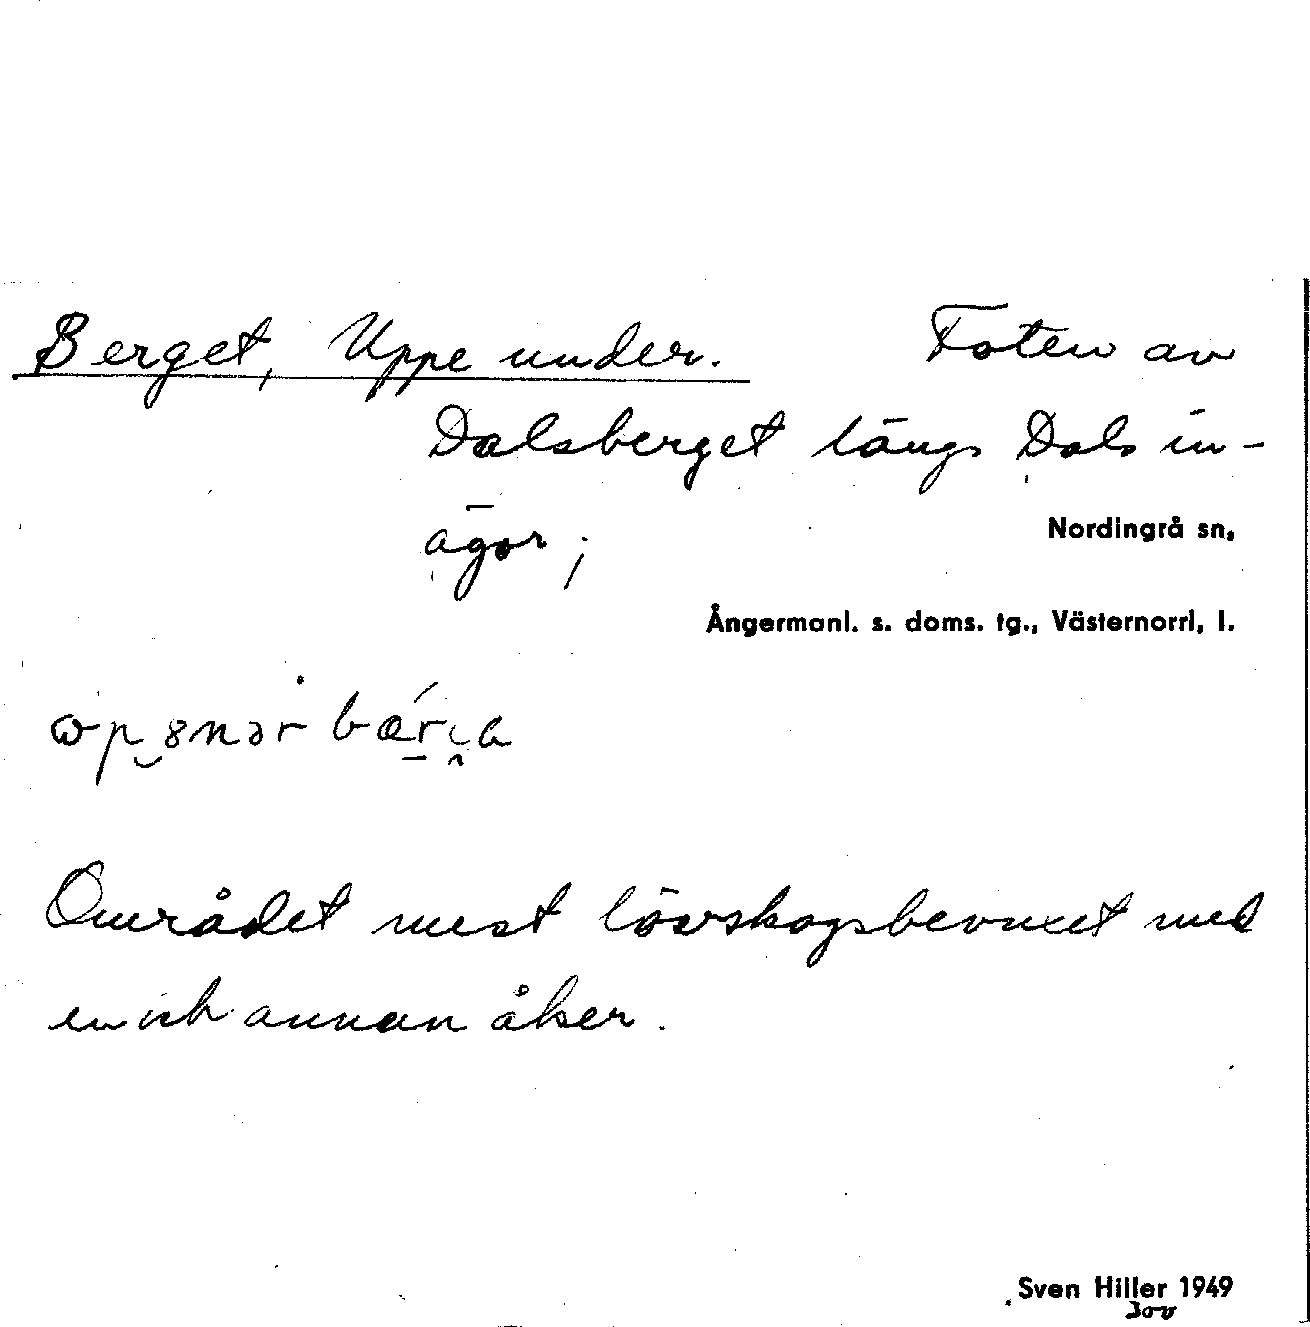 Berget, Uppe under. Foten av
Dalsberget längs Dals in-
ägor;
Nordingrå sn,
Ångermanl. s. doms. tg., Västernorrl, l.
Området mest lövskogsbevuxet med
en och annan åker.
Sven Hiller 1949